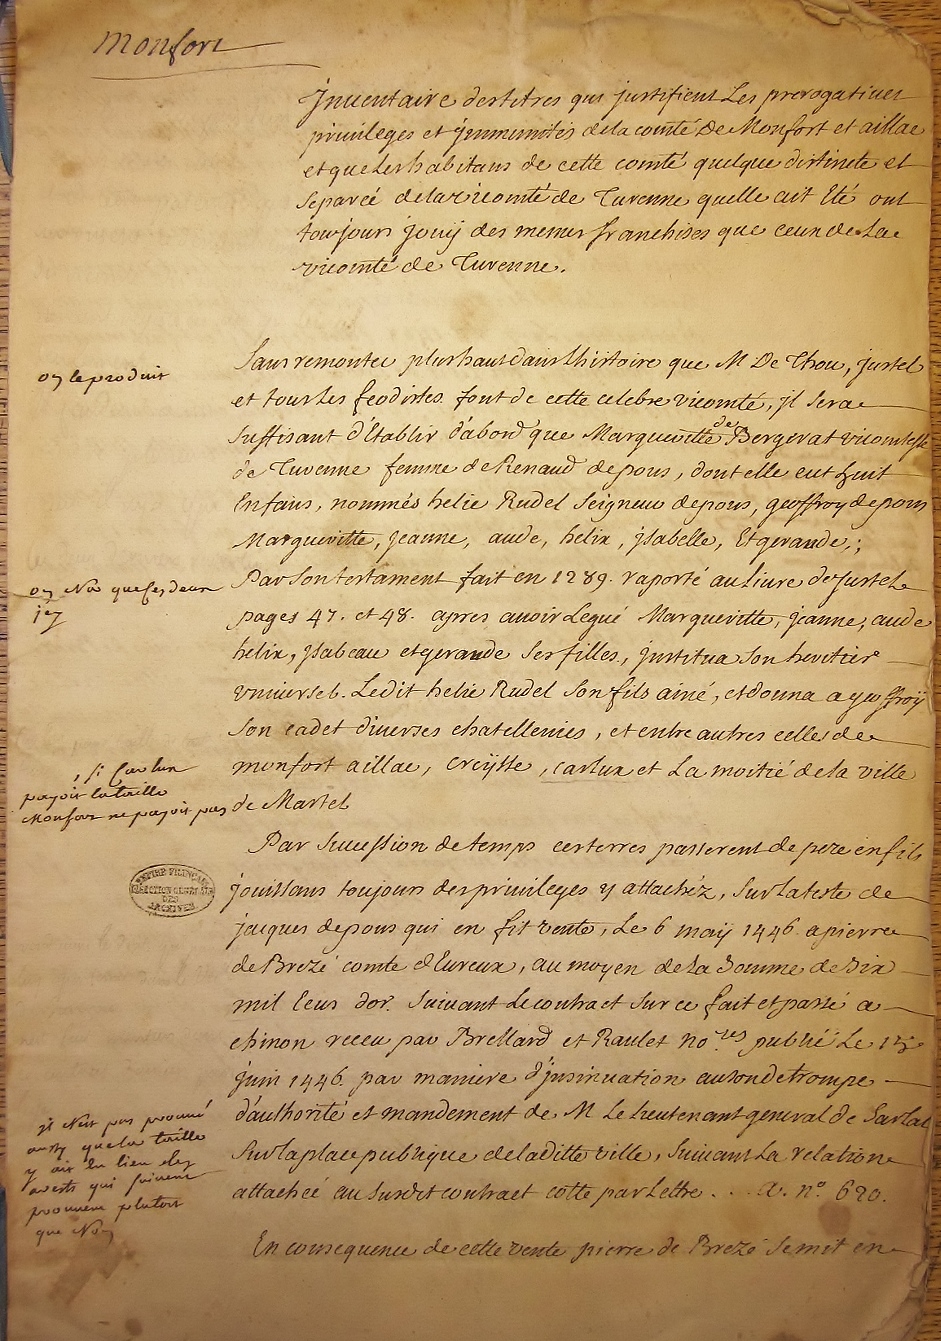 Monfort
Inventaire des titres qui justifient Les prerogatives
privileges et jmmunités de la comté de Monfort et aillac
et que Les habitans de cette comté quelque distincte et
separeé de la vicomté de Turenne quelle ait Eté ont
toujours jouÿ des memes franchises que ceux de La
vicomté de Turenne.
Sans remonter plus haut dans Lhistoire que M De Thou, justel
on le produit
et tous Les feodistes font de cette celebre vicomté, jl sera
suffisant d'Etablir d'abord que Margueritte de Bergerat vicomtesse
de Turenne femme de Renaud de pons, dont elle eut huit
Enfans, nommés helie Rudel Seigneur de pons, geoffroy de pons
Margueritte, jeanne, aude, helix, jsabelle, Et gerande,;
Par Son testament fait en 1289. raporté au Livre de Justel
on
pages 47. et 48. apres avoir Legué Margueritte, jeanne, aude
helix, jsabeau et gerande Ses filles, jnstitua Son heritier
universel. Ledit helie Rudel Son fils ainé, et donna a geoffroÿ
Son cadet diverses chatellenies, et entre autres celles de
monfort aillac, creÿsse, carlux et La moitié de la ville
, si Carlux
payoit la taille
Monfort ne payoit pas
de Martel
Par Succession de temps ces terres passerent de pere en fils
EMPIRE FRANÇAIS
DIRECTION GENERALE
DES
ARCHIVES
jouissans toujours des privileges y attachéz, Sur La teste de
jacques de pons qui en fit vente, Le 6 maÿ 1446. a pierre
de Brezé comte d'Evreux, au moyen de la Somme de Dix
mil Ecus d'or. Suivant Le contract Sur ce fait et passé a
chinon receu par Brellard et Raulet no.res publié Le
juin 1446. par maniere d'jnsinuation au son de trompe
d'authorité et mandement de M Le Lieutenant general de Sarlat
Sur la place publique de laditte ville, Suivant La relation
attacheé au Susdit contract cotté par Lettre . . . a. n.o 690.
jl N'est pas prouvé
que la taille
y ait lieu
qui
prouvent plutost
que Non
En consequence de cette vente pierre de Brezé Se mit en